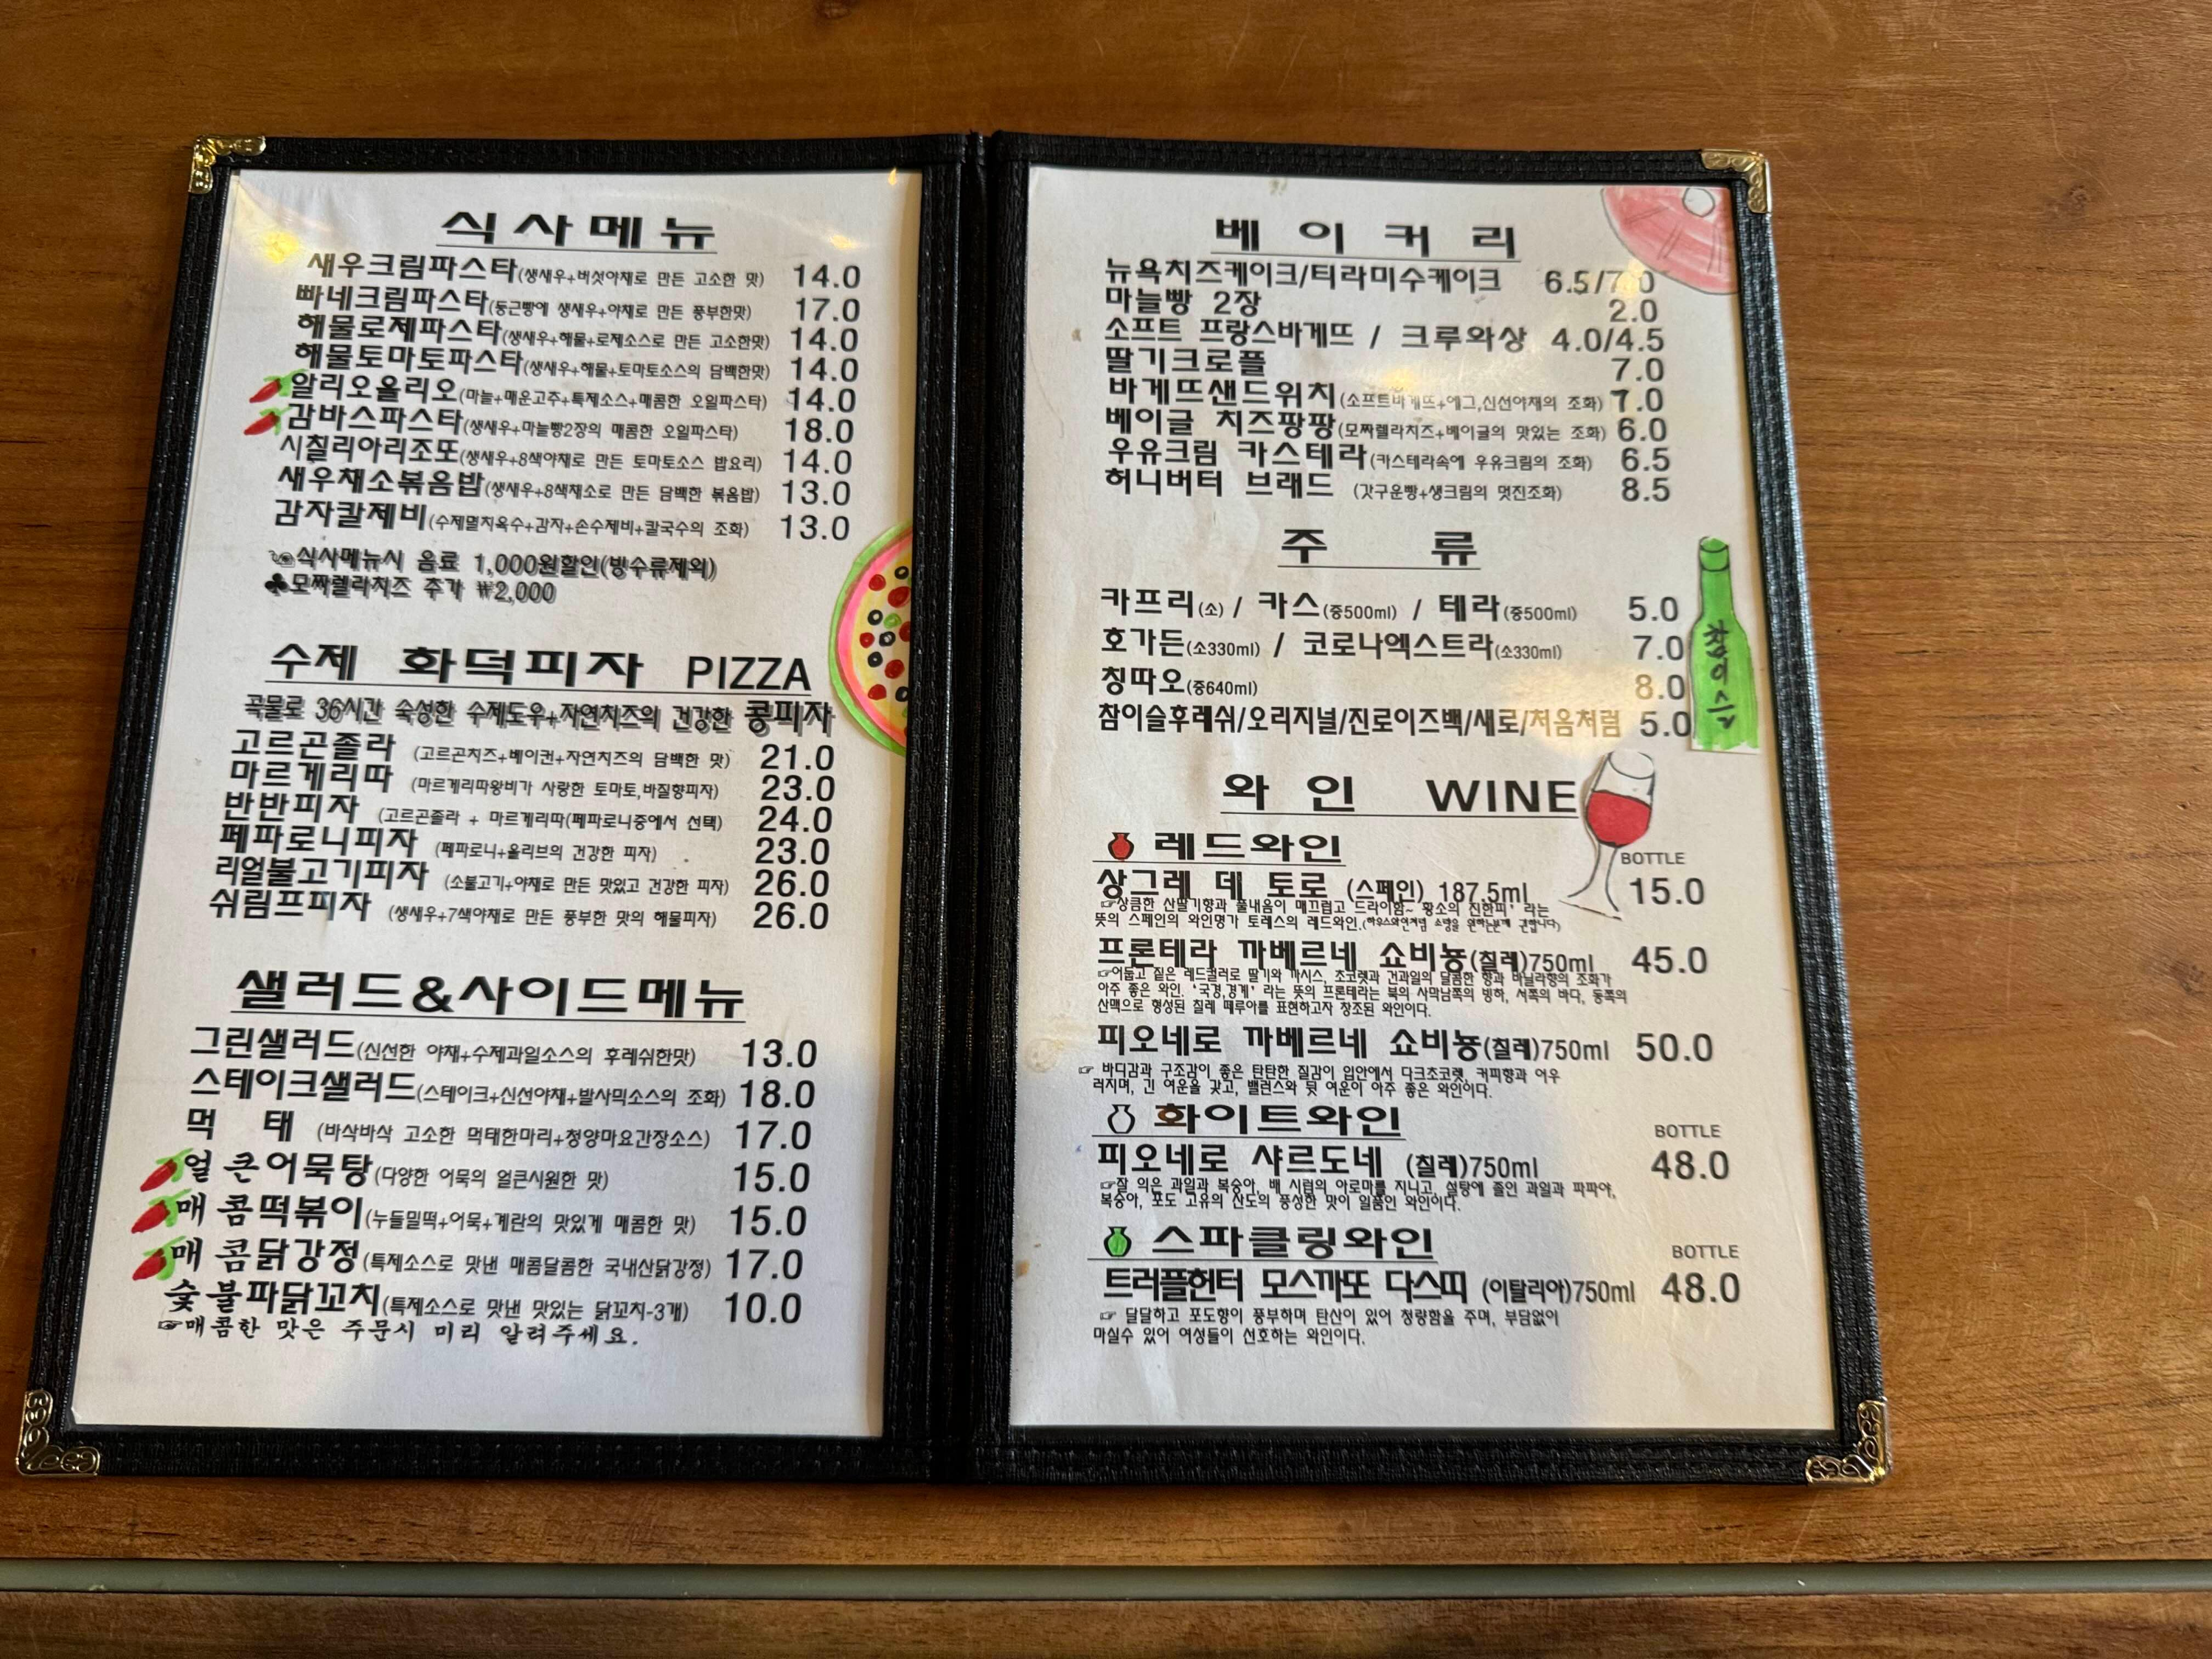 식사메뉴
새우크림파스타(생새우+버섯야채로 만든 고소한 맛) 14.0
빠네크림파스타(둥근빵에 생새우+야채로 만든 풍부한맛) 17.0
해물로제파스타(생새우+해물+로제소스로 만든 고소한맛) 14.0
해물토마토파스타(생새우+해물+토마토소스의 담백한맛) 14.0
알리오올리오(마늘+매운고추+특제소스+매콤한 오일파스타) 14.0
감바스파스타(생새우+마늘빵2장의 매콤한 오일파스타) 18.0
시칠리아리조또(생새우+8색야채로 만든 토마토소스 밥요리) 14.0
새우채소볶음밥(생새우+8색채소로 만든 담백한 볶음밥) 13.0
감자칼제비(수제멸치육수+감자+손수제비+칼국수의 조화) 13.0
☜식사메뉴시 음료 1,000원할인(빙수류제외)
♣모짜렐라치즈 추가 ₩2,000
수제 화덕피자 PIZZA
곡물로 36시간 숙성한 수제도우+자연치즈의 건강한 콩피자
고르곤졸라 (고르곤치즈+베이컨+자연치즈의 담백한 맛) 21.0
마르게리따 (마르게리따왕비가 사랑한 토마토,바질향피자) 23.0
반반피자 (고르곤졸라 + 마르게리따(페파로니중에서 선택) 24.0
페파로니피자 (페파로니+올리브의 건강한 피자) 23.0
리얼불고기피자 (소불고기+야채로 만든 맛있고 건강한 피자) 26.0
쉬림프피자 (생새우+7색야채로 만든 풍부한 맛의 해물피자) 26.0
샐러드&사이드메뉴
그린샐러드(신선한 야채+수제과일소스의 후레쉬한맛) 13.0
스테이크샐러드(스테이크+신선야채+발사믹소스의 조화) 18.0
먹 태 (바삭바삭 고소한 먹태한마리+청양마요간장소스) 17.0
얼큰어묵탕(다양한 어묵의 얼큰시원한 맛) 15.0
매콤떡볶이(누들밀떡+어묵+계란의 맛있게 매콤한 맛) 15.0
매콤닭강정(특제소스로 맛낸 매콤달콤한 국내산닭강정) 17.0
숯불파닭꼬치(특제소스로 맛낸 맛있는 닭꼬치-3개) 10.0
☞매콤한 맛은 주문시 미리 알려주세요.
베이커리
뉴욕치즈케이크/티라미수케이크 6.5/7.0
마늘빵 2장 2.0
소프트 프랑스바게뜨 / 크루와상 4.0/4.5
딸기크로플 7.0
바게뜨샌드위치(소프트바게뜨+에그,신선야채의 조화) 7.0
베이글 치즈팡팡(모짜렐라치즈+베이글의 맛있는 조화) 6.0
우유크림 카스테라(카스테라속에 우유크림의 조화) 6.5
허니버터 브래드 (갓구운빵+생크림의 멋진조화) 8.5
주 류
카프리(소) / 카스(중500ml) / 테라(중500ml) 5.0
호가든(소330ml) / 코로나엑스트라(소330ml) 7.0
칭따오(중640ml) 8.0
참이슬후레쉬/오리지널/진로이즈백/새로/처음처럼 5.0
참이슬
와 인 WINE
레드와인
BOTTLE
상그레 데 토로 (스페인) 187.5ml 15.0
☞상큼한 산딸기향과 풀내음이 매끄럽고 드라이함~ 황소의 진한피' 라는
뜻의 스페인의 와인명가 토레스의 레드와인.(하우스와인처럼 소량을 원하는분께 권합니다)
프론테라 까베르네 쇼비뇽(칠레)750ml 45.0
☞어둡고 짙은 레드컬러로 딸기와 까시스, 초코렛과 건과일의 달콤한 향과 바닐라향의 조화가
아주 좋은 와인. '국경,경계' 라는 뜻의 프론테라는 북의 사막남쪽의 빙하, 서쪽의 바다, 동쪽의
산맥으로 형성된 칠레 떼루아를 표현하고자 창조된 와인이다.
피오네로 까베르네 쇼비뇽(칠레)750ml 50.0
☞ 바디감과 구조감이 좋은 탄탄한 질감이 입안에서 다크초코렛, 커피향과 어우
러지며, 긴 여운을 갖고, 밸런스와 뒷 여운이 아주 좋은 와인이다.
화이트와인
BOTTLE
피오네로 샤르도네 (칠레)750ml 48.0
☞잘 익은 과일과 복숭아, 배 시럽의 아로마를 지니고, 설탕에 졸인 과일과 파파야,
복숭아, 포도 고유의 산도의 풍성한 맛이 일품인 와인이다.
스파클링와인
BOTTLE
트러플헌터 모스까또 다스띠 (이탈리아)750ml 48.0
☞ 달달하고 포도향이 풍부하며 탄산이 있어 청량함을 주며, 부담없이
마실수 있어 여성들이 선호하는 와인이다.